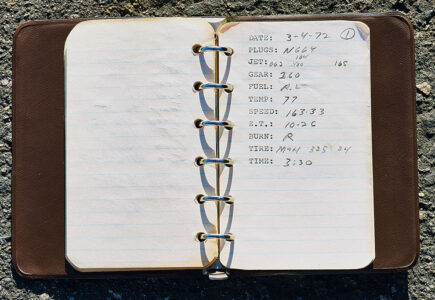 DATE: 3-4-72 1
PLUGS: N66Y
JET: 160 165
GEAR: 360
FUEL:
TEMP: 77
SPEED: 163.33
E.T.: 10.26
BURN: R
TIRE: M&H
TIME: 3:30